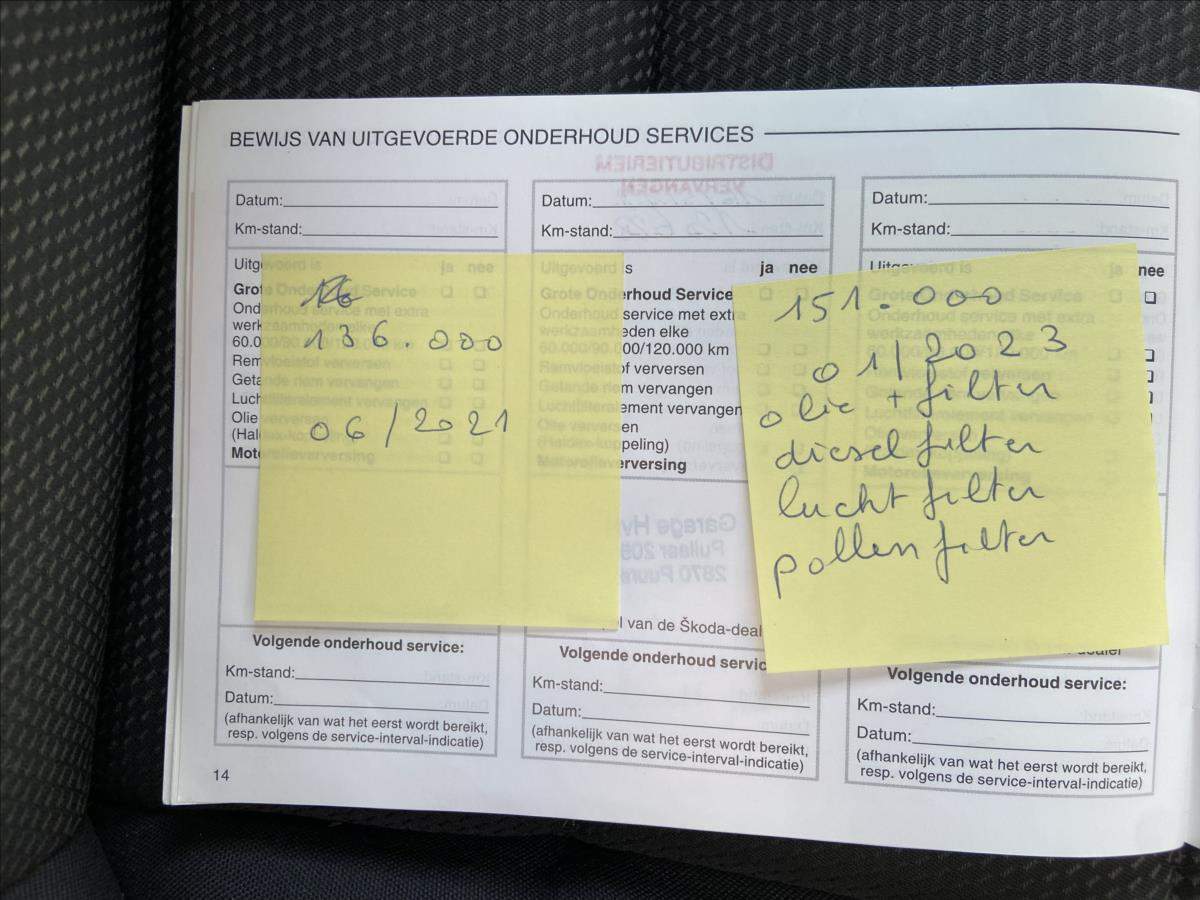 BEWIJS VAN UITGEVOERDE ONDERHOUD SERVICES
DISTRIBUTIERIEM
VERVANGEN
Datum:
Km-stand:
Uitgevoerd is ja nee
Grote Onderhoud Service
Onderhoud service met extra
werkzaamheden elke
60.000/90.000/120.000 km
Remvloeistof verversen
Getande riem vervangen
Luchtfilterelement vervangen
Olie verversen
(Haldex-koppeling)
Motorolieverversing
136.000
06/2021
Volgende onderhoud service:
Km-stand:
Datum:
(afhankelijk van wat het eerst wordt bereikt,
resp. volgens de service-interval-indicatie)
Datum:
Km-stand:
Uitgevoerd is ja nee
Grote Onderhoud Service
Onderhoud service met extra
werkzaamheden elke
60.000/90.000/120.000 km
Remvloeistof verversen
Getande riem vervangen
Luchtfilterelement vervangen
Olie verversen
(Haldex-koppeling)
Motorolieverversing
Garage
van de Škoda-deal
Volgende onderhoud servic
Km-stand:
Datum:
(afhankelijk van wat het eerst wordt bereikt,
resp. volgens de service-interval-indicatie)
Datum:
Km-stand:
Uitgevoerd is ja nee
Grote Onderhoud Service
Onderhoud service met extra
151.000
01/2023
olie + filter
dieselfilter
luchtfilter
pollenfilter
Volgende onderhoud service:
Km-stand:
Datum:
(afhankelijk van wat het eerst wordt bereikt,
resp. volgens de service-interval-indicatie)
14